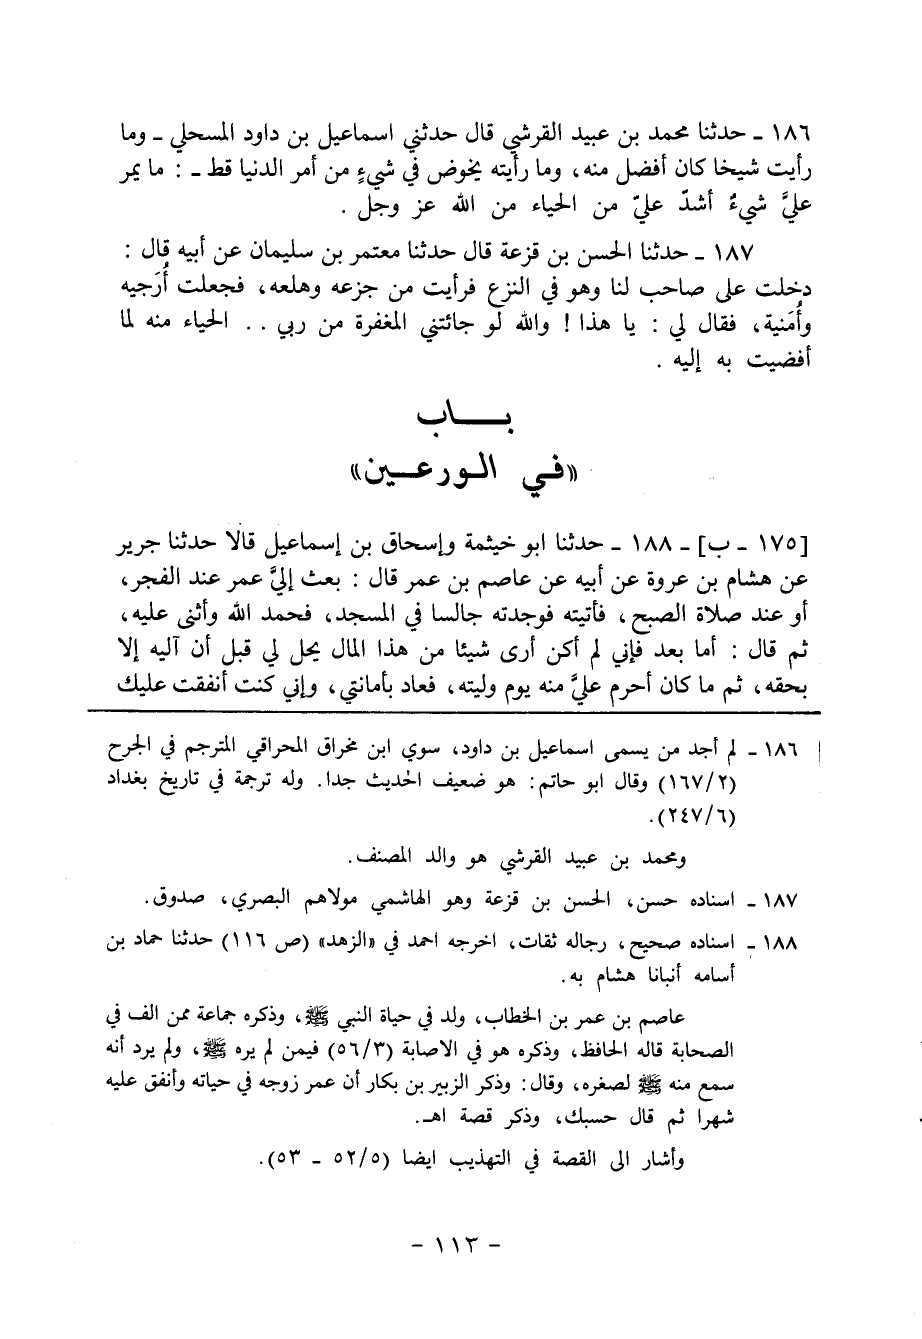 ١٨٦ ـ حدثنا محمد بن عبيد القرشي قال حدثني اسماعيل بن داود المسحلي ـ وما
رأيت شيخا كان أفضل منه، وما رأيته يخوض في شيءٍ من أمر الدنيا قط ـ : ما يمر
عليَّ شيءٌ أشدّ عليّ من الحياء من الله عز وجل .
١٨٧ ـ حدثنا الحسن بن قزعة قال حدثنا معتمر بن سليمان عن أبيه قال :
دخلت على صاحب لنا وهو في النزع فرأيت من جزعه وهلعه، فجعلت أُرَجيه
وأُمَنية، فقال لي : يا هذا ! والله لو جائتني المغفرة من ربي .. الحياء منه لما
أفضيت به إليه .
بـــاب
«في الورعين»
[١٧٥ ـ ب] ـ ١٨٨ ـ حدثنا ابو خيثمة وإسحاق بن إسماعيل قالا حدثنا جرير
عن هشام بن عروة عن أبيه عن عاصم بن عمر قال : بعث إليَّ عمر عند الفجر،
أو عند صلاة الصبح، فأتيته فوجدته جالسا في المسجد، فحمد الله وأثنى عليه،
ثم قال : أما بعد فإني لم أكن أرى شيئا من هذا المال يحل لي قبل أن آليه إلا
بحقه، ثم ما كان أحرم عليَّ منه يوم وليته، فعاد بأمانتي، وإني كنت أنفقت عليك
١٨٦ ـ لم أجد من يسمى اسماعيل بن داود، سوي ابن مخراق المحراقي المترجم في الجرح
(١٦٧/٢) وقال ابو حاتم: هو ضعيف الحديث جدا. وله ترجمة في تاريخ بغداد
(٢٤٧/٦).
ومحمد بن عبيد القرشي هو والد المصنف.
١٨٧ ـ اسناده حسن، الحسن بن قزعة وهو الهاشمي مولاهم البصري، صدوق.
١٨٨ ـ اسناده صحيح، رجاله ثقات، اخرجه احمد في «الزهد» (ص ١١٦) حدثنا حماد بن
أسامه أنبانا هشام به.
عاصم بن عمر بن الخطاب، ولد في حياة النبي ﷺ، وذكره جماعة ممن الف في
الصحابة قاله الحافظ، وذكره هو في الاصابة (٥٦/٣) فيمن لم يره ﷺ، ولم يرد أنه
سمع منه ﷺ لصغره، وقال: وذكر الزبير بن بكار أن عمر زوجه في حياته وأنفق عليه
شهرا ثم قال حسبك، وذكر قصة اهـ.
وأشار الى القصة في التهذيب ايضا (٥٢/٥ ـ ٥٣).
- ١١٣ -